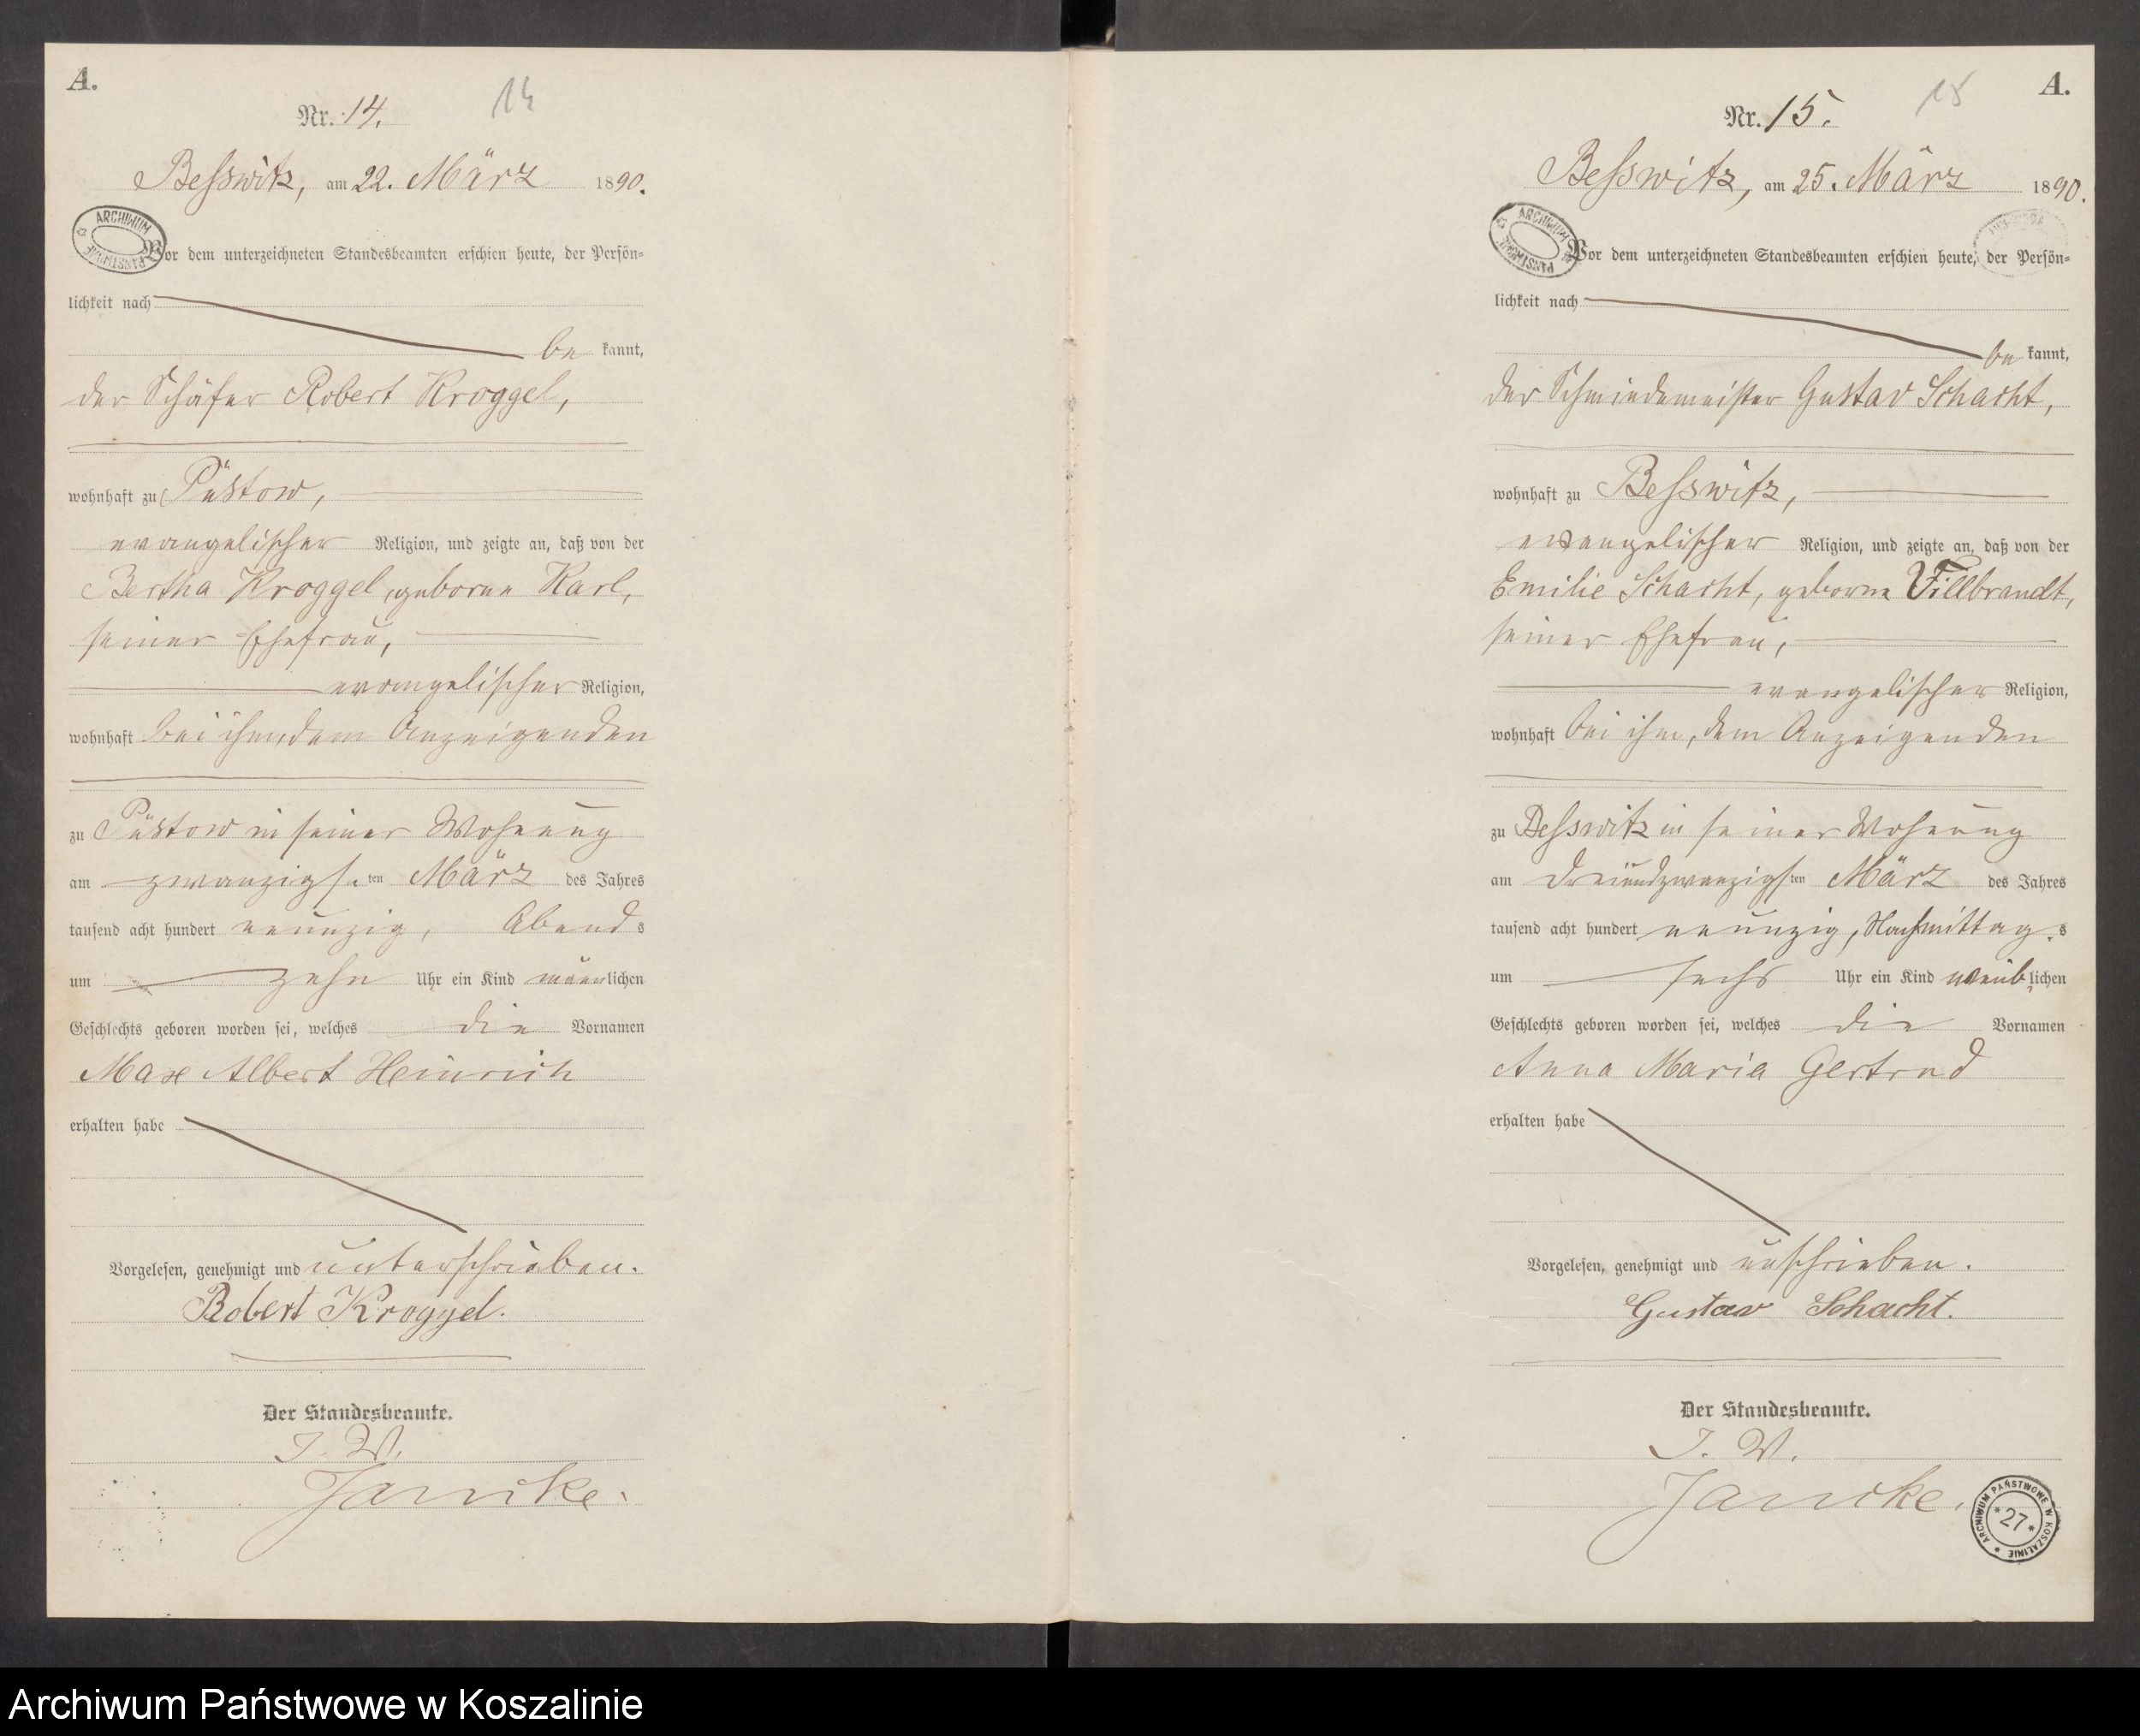 A.
Nr. 14.
14
Beßswitz, am 22. März 1890.
ARCHIWUM PAŃSTWOWE
Vor dem unterzeichneten Standesbeamten erschien heute, der Persön=
lichkeit nach
be kannt,
der Schäfer Robert Kroggel,
wohnhaft zu Püstow,
evangelischer Religion, und zeigte an, daß von der
Bertha Kroggel, geborne Karl,
seiner Ehefrau,
evangelischer Religion,
wohnhaft bei ihm, dem Anzeigenden
zu Püstow in seiner Wohnung
am zwanzigsten März des Jahres
tausend acht hundert neunzig, Abends
um zehn Uhr ein Kind männlichen
Geschlechts geboren worden sei, welches die Vornamen
Max Albert Heinrich
erhalten habe
Vorgelesen, genehmigt und unterschrieben.
Robert Kroggel.
Der Standesbeamte.
I. V.
Jancke.
A.
Nr. 15.
15
Beßswitz, am 25. März 1890.
ARCHIWUM PAŃSTWOWE
Vor dem unterzeichneten Standesbeamten erschien heute, der Persön=
lichkeit nach
be kannt,
der Schmiedemeister Gustav Schacht,
wohnhaft zu Beßswitz,
evangelischer Religion, und zeigte an, daß von der
Emilie Schacht, geborne Fillbrandt,
seiner Ehefrau,
evangelischer Religion,
wohnhaft bei ihm, dem Anzeigenden
zu Beßswitz in seiner Wohnung
am dreiundzwanzigsten März des Jahres
tausend acht hundert neunzig, Nachmittags
um sechs Uhr ein Kind weiblichen
Geschlechts geboren worden sei, welches die Vornamen
Anna Maria Gertrud
erhalten habe
Vorgelesen, genehmigt und unschrieben.
Gustav Schacht.
Der Standesbeamte.
I. V.
Jancke.
ARCHIWUM PAŃSTWOWE W KOSZALINIE
*27*
Archiwum Państwowe w Koszalinie